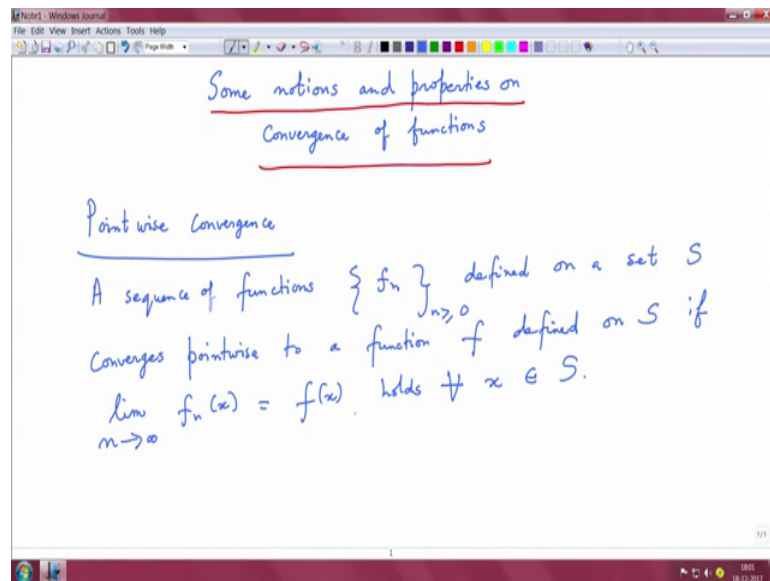 Note1 - Windows Journal
File Edit View Insert Actions Tools Help
Page Width
Some notions and properties on
Convergence of functions
Pointwise Convergence
A sequence of functions { fn }n≥0 defined on a set S
converges pointwise to a function f defined on S if
lim n→∞ fn(x) = f(x). holds ∀ x ∈ S.
1/1
1
18:01
18-12-2017